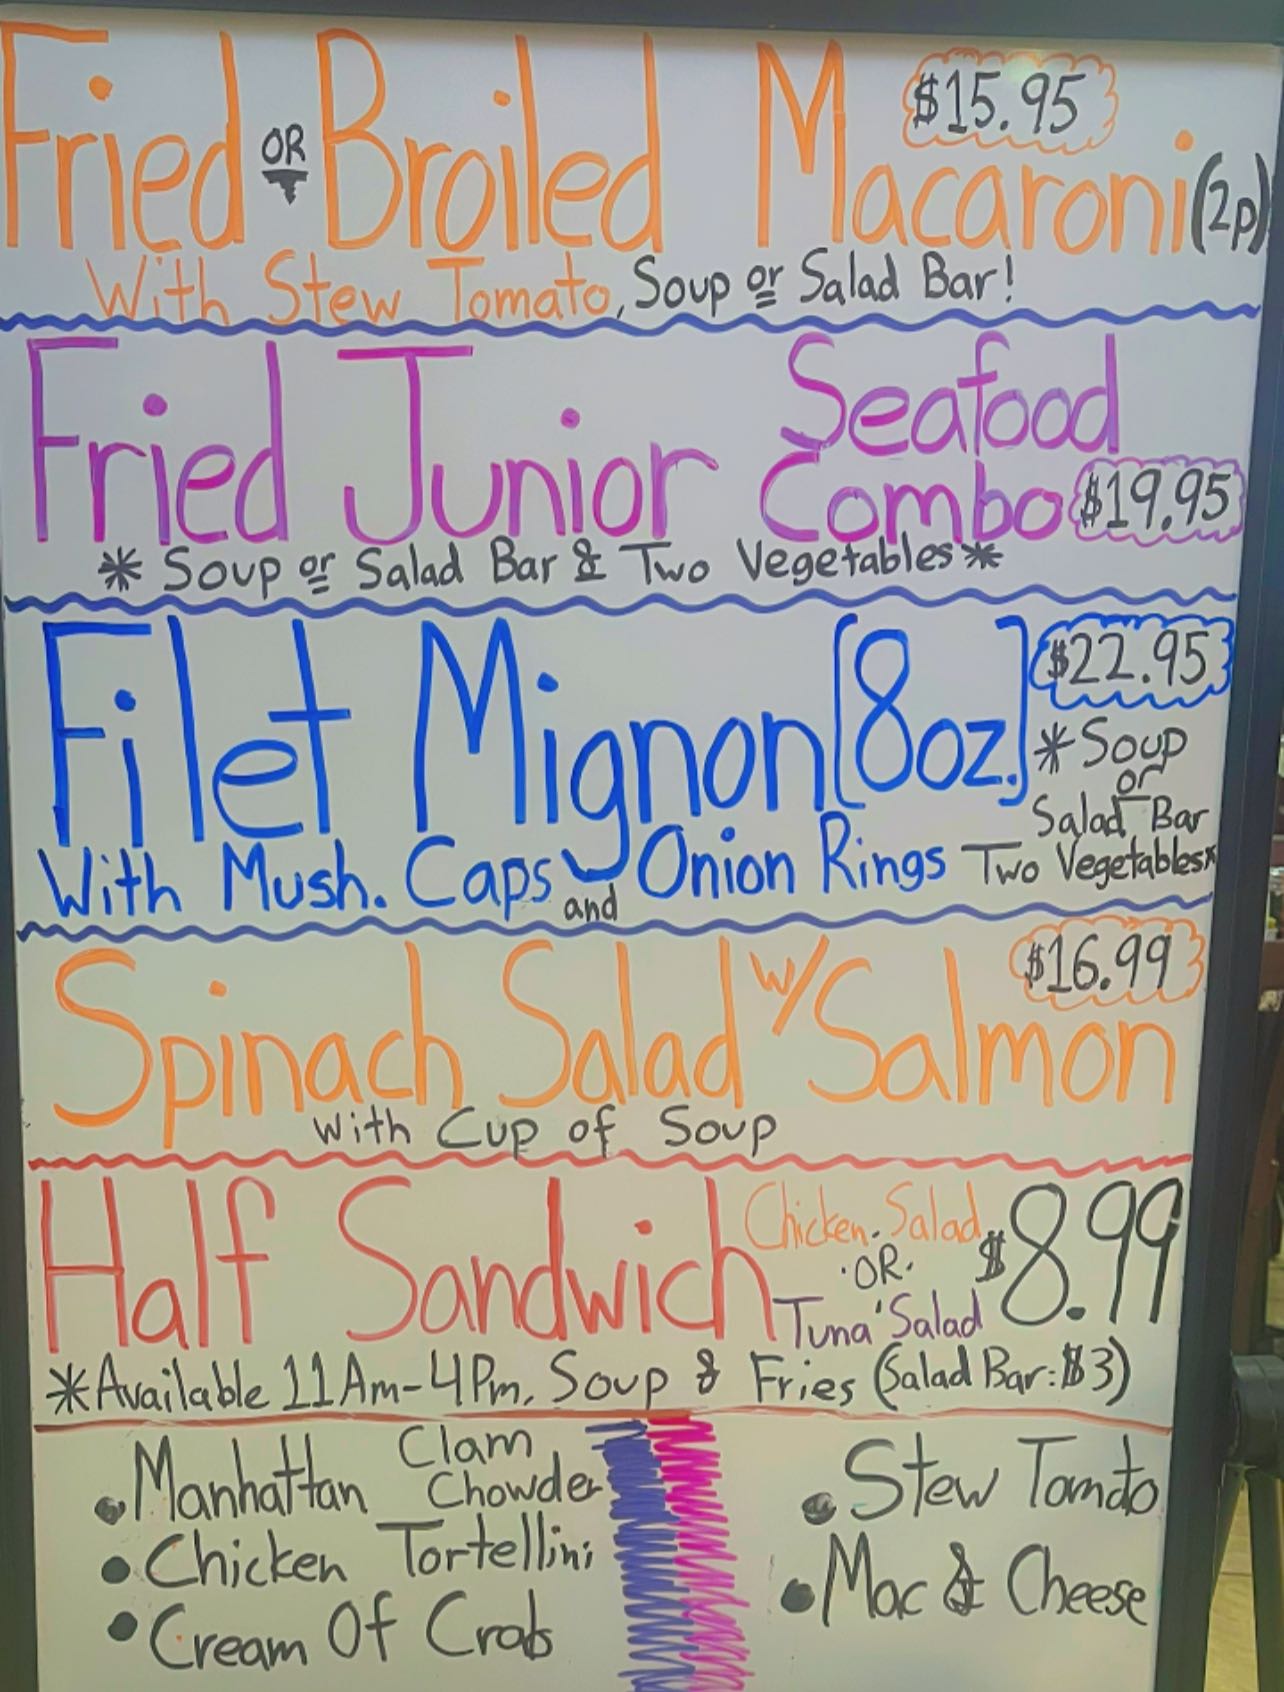 Fried OR Broiled Macaroni (2p) $15.95
With Stew Tomato, Soup or Salad Bar!
Fried Junior Seafood Combo $19.95
* Soup or Salad Bar & Two Vegetables *
Filet Mignon [8oz.] $22.95
With Mush. Caps and Onion Rings
* Soup
or
Salad Bar
Two Vegetables *
Spinach Salad w/ Salmon $16.99
With Cup of Soup
Half Sandwich
Chicken Salad
·OR·
Tuna Salad
$8.99
* Available 11Am-4Pm, Soup & Fries (Salad Bar: $3)
• Manhattan Clam Chowder
• Chicken Tortellini
• Cream Of Crab
• Stew Tomato
• Mac & Cheese